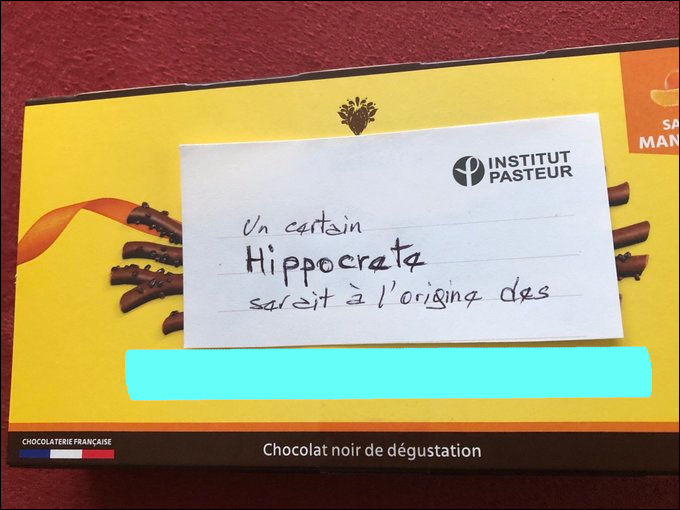 SA
MAN
INSTITUT
PASTEUR
Un certain
Hippocrate
serait à l'origine des
CHOCOLATERIE FRANÇAISE
Chocolat noir de dégustation